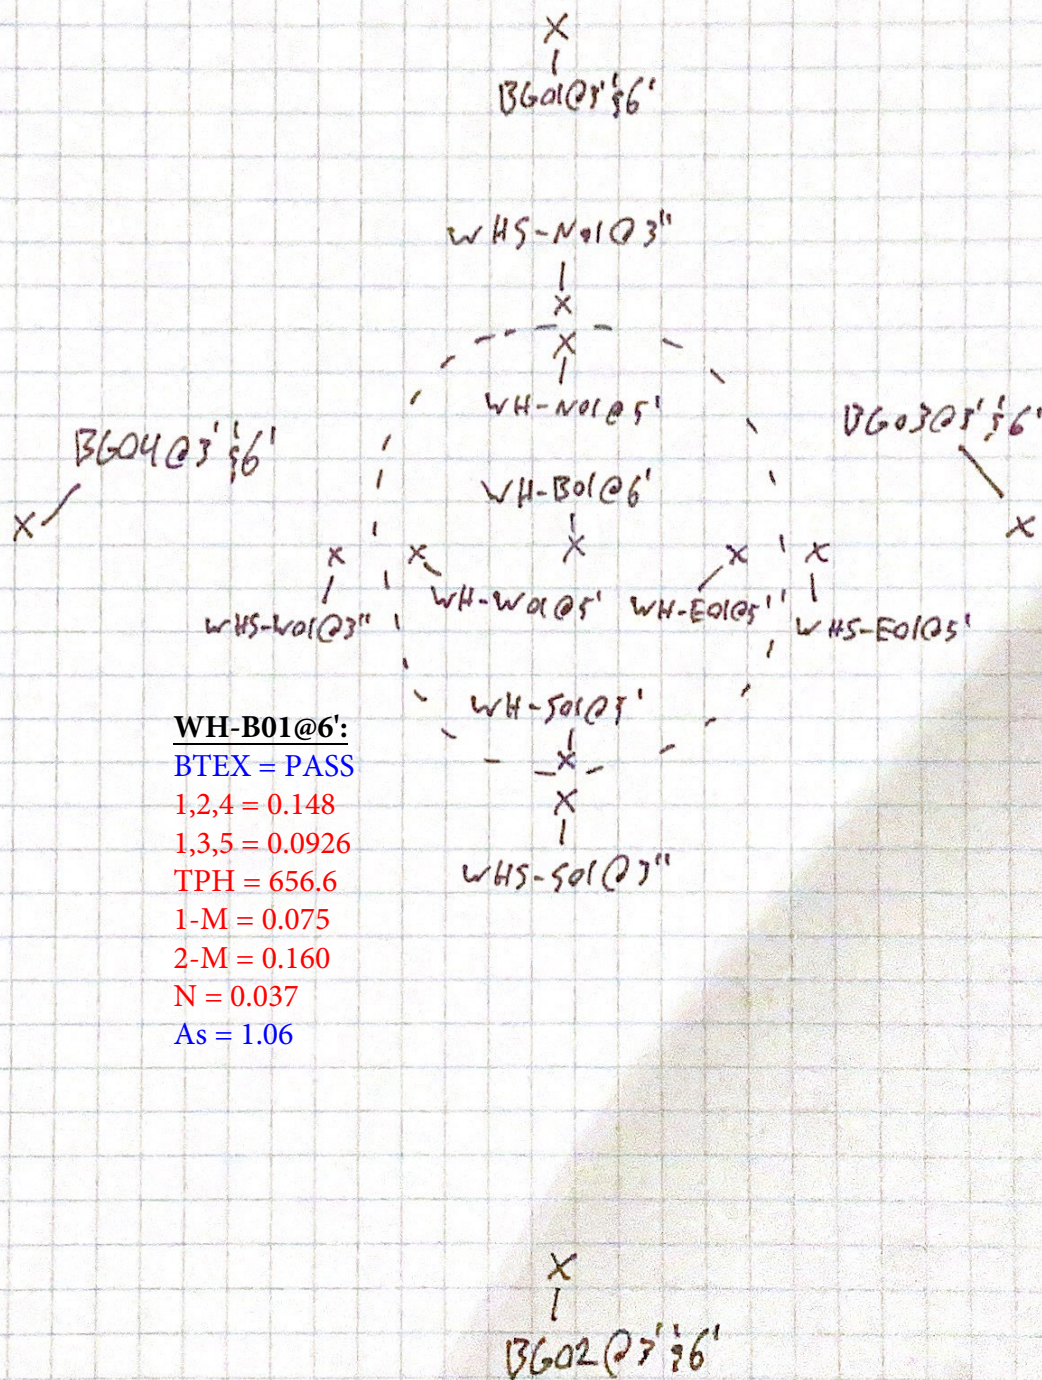 X
BG01@3' & 6'
WHS-N01@3"
X
X
WH-N01@5'
BG04@3' & 6'
BG03@3' & 6'
WH-B01@6'
X
X
X
X
X
X
X
WHS-W01@3"
WH-W01@5'
WH-E01@5'
WHS-E01@5'
WH-S01@5'
X
X
WHS-S01@3"
WH-B01@6':
BTEX = PASS
1,2,4 = 0.148
1,3,5 = 0.0926
TPH = 656.6
1-M = 0.075
2-M = 0.160
N = 0.037
As = 1.06
X
BG02@3' & 6'